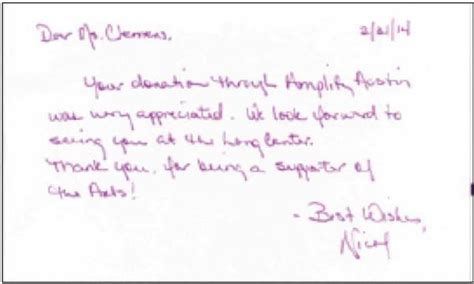 Dear Ms. Clemens, 3/31/14
Your donation through Amplify Austin
was very appreciated. We look forward to
seeing you at the Long Center.
Thank you, for being a supporter of
the Arts!
- Best Wishes,